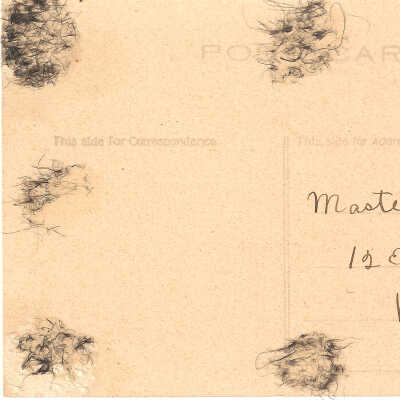 POST CAR
This side for Correspondence.
This side for Addre
Maste
12 E